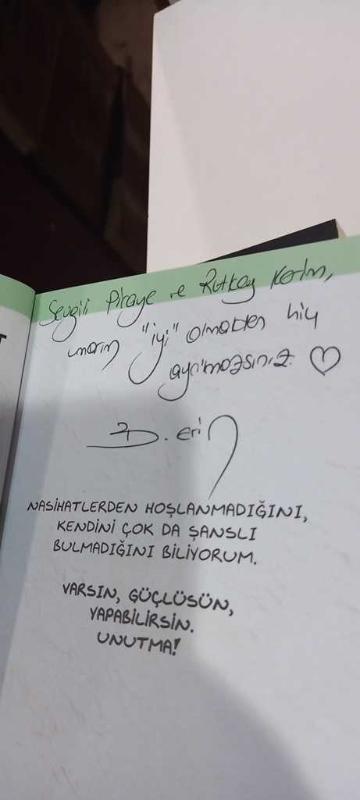 Sevgili Piraye ve Rutkay Kerim,
umarım "iyi" olmaktan hiç
ayrılmazsınız. ♡
D. erin
NASİHATLERDEN HOŞLANMADIĞINI,
KENDİNİ ÇOK DA ŞANSLI
BULMADIĞINI BİLİYORUM.
VARSIN, GÜÇLÜSÜN,
YAPABİLİRSİN.
UNUTMA!